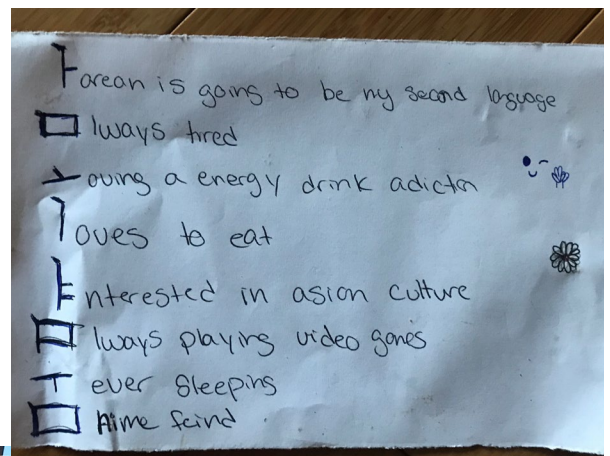 ㅏorean is going to be my second language
ㅁlways tired
oving a energy drink
ㅣoves to eat
ㅑnterested in asian culture
ㅁlways playing video games
ㅜever sleeping
ㅁnime feind